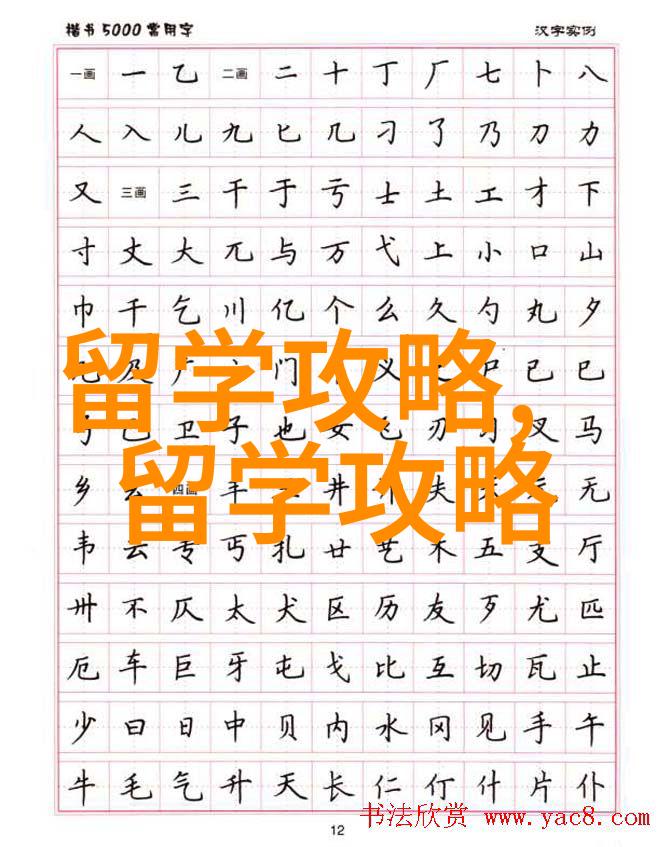 楷书5000常用字 汉字实例
一画 一 乙 二画 二 十 丁 厂 七 卜 八
人 入 儿 九 匕 几 刁 了 乃 刀 力
又 三画 三 干 于 亏 士 土 工 才 下
寸 丈 大 兀 与 万 弋 上 小 口 山
巾 千 乞 川 亿 个 么 久 勺 丸 夕
及 广 门 义 之 尸 已 巳
留学攻略,
卫 子 也 女 飞 刃 习 叉 马
乡 四画 丰 井 夫 无
留学攻略
韦 云 专 丐 扎 廿 艺 木 五 支 厅
卅 不 仄 太 犬 区 历 友 歹 尤 匹
厄 车 巨 牙 屯 戈 比 互 切 瓦 止
少 曰 日 中 贝 内 水 冈 见 手 午
牛 毛 气 升 夭 长 仁 仃 什 片 仆
12
书法欣赏 www.yac8.com